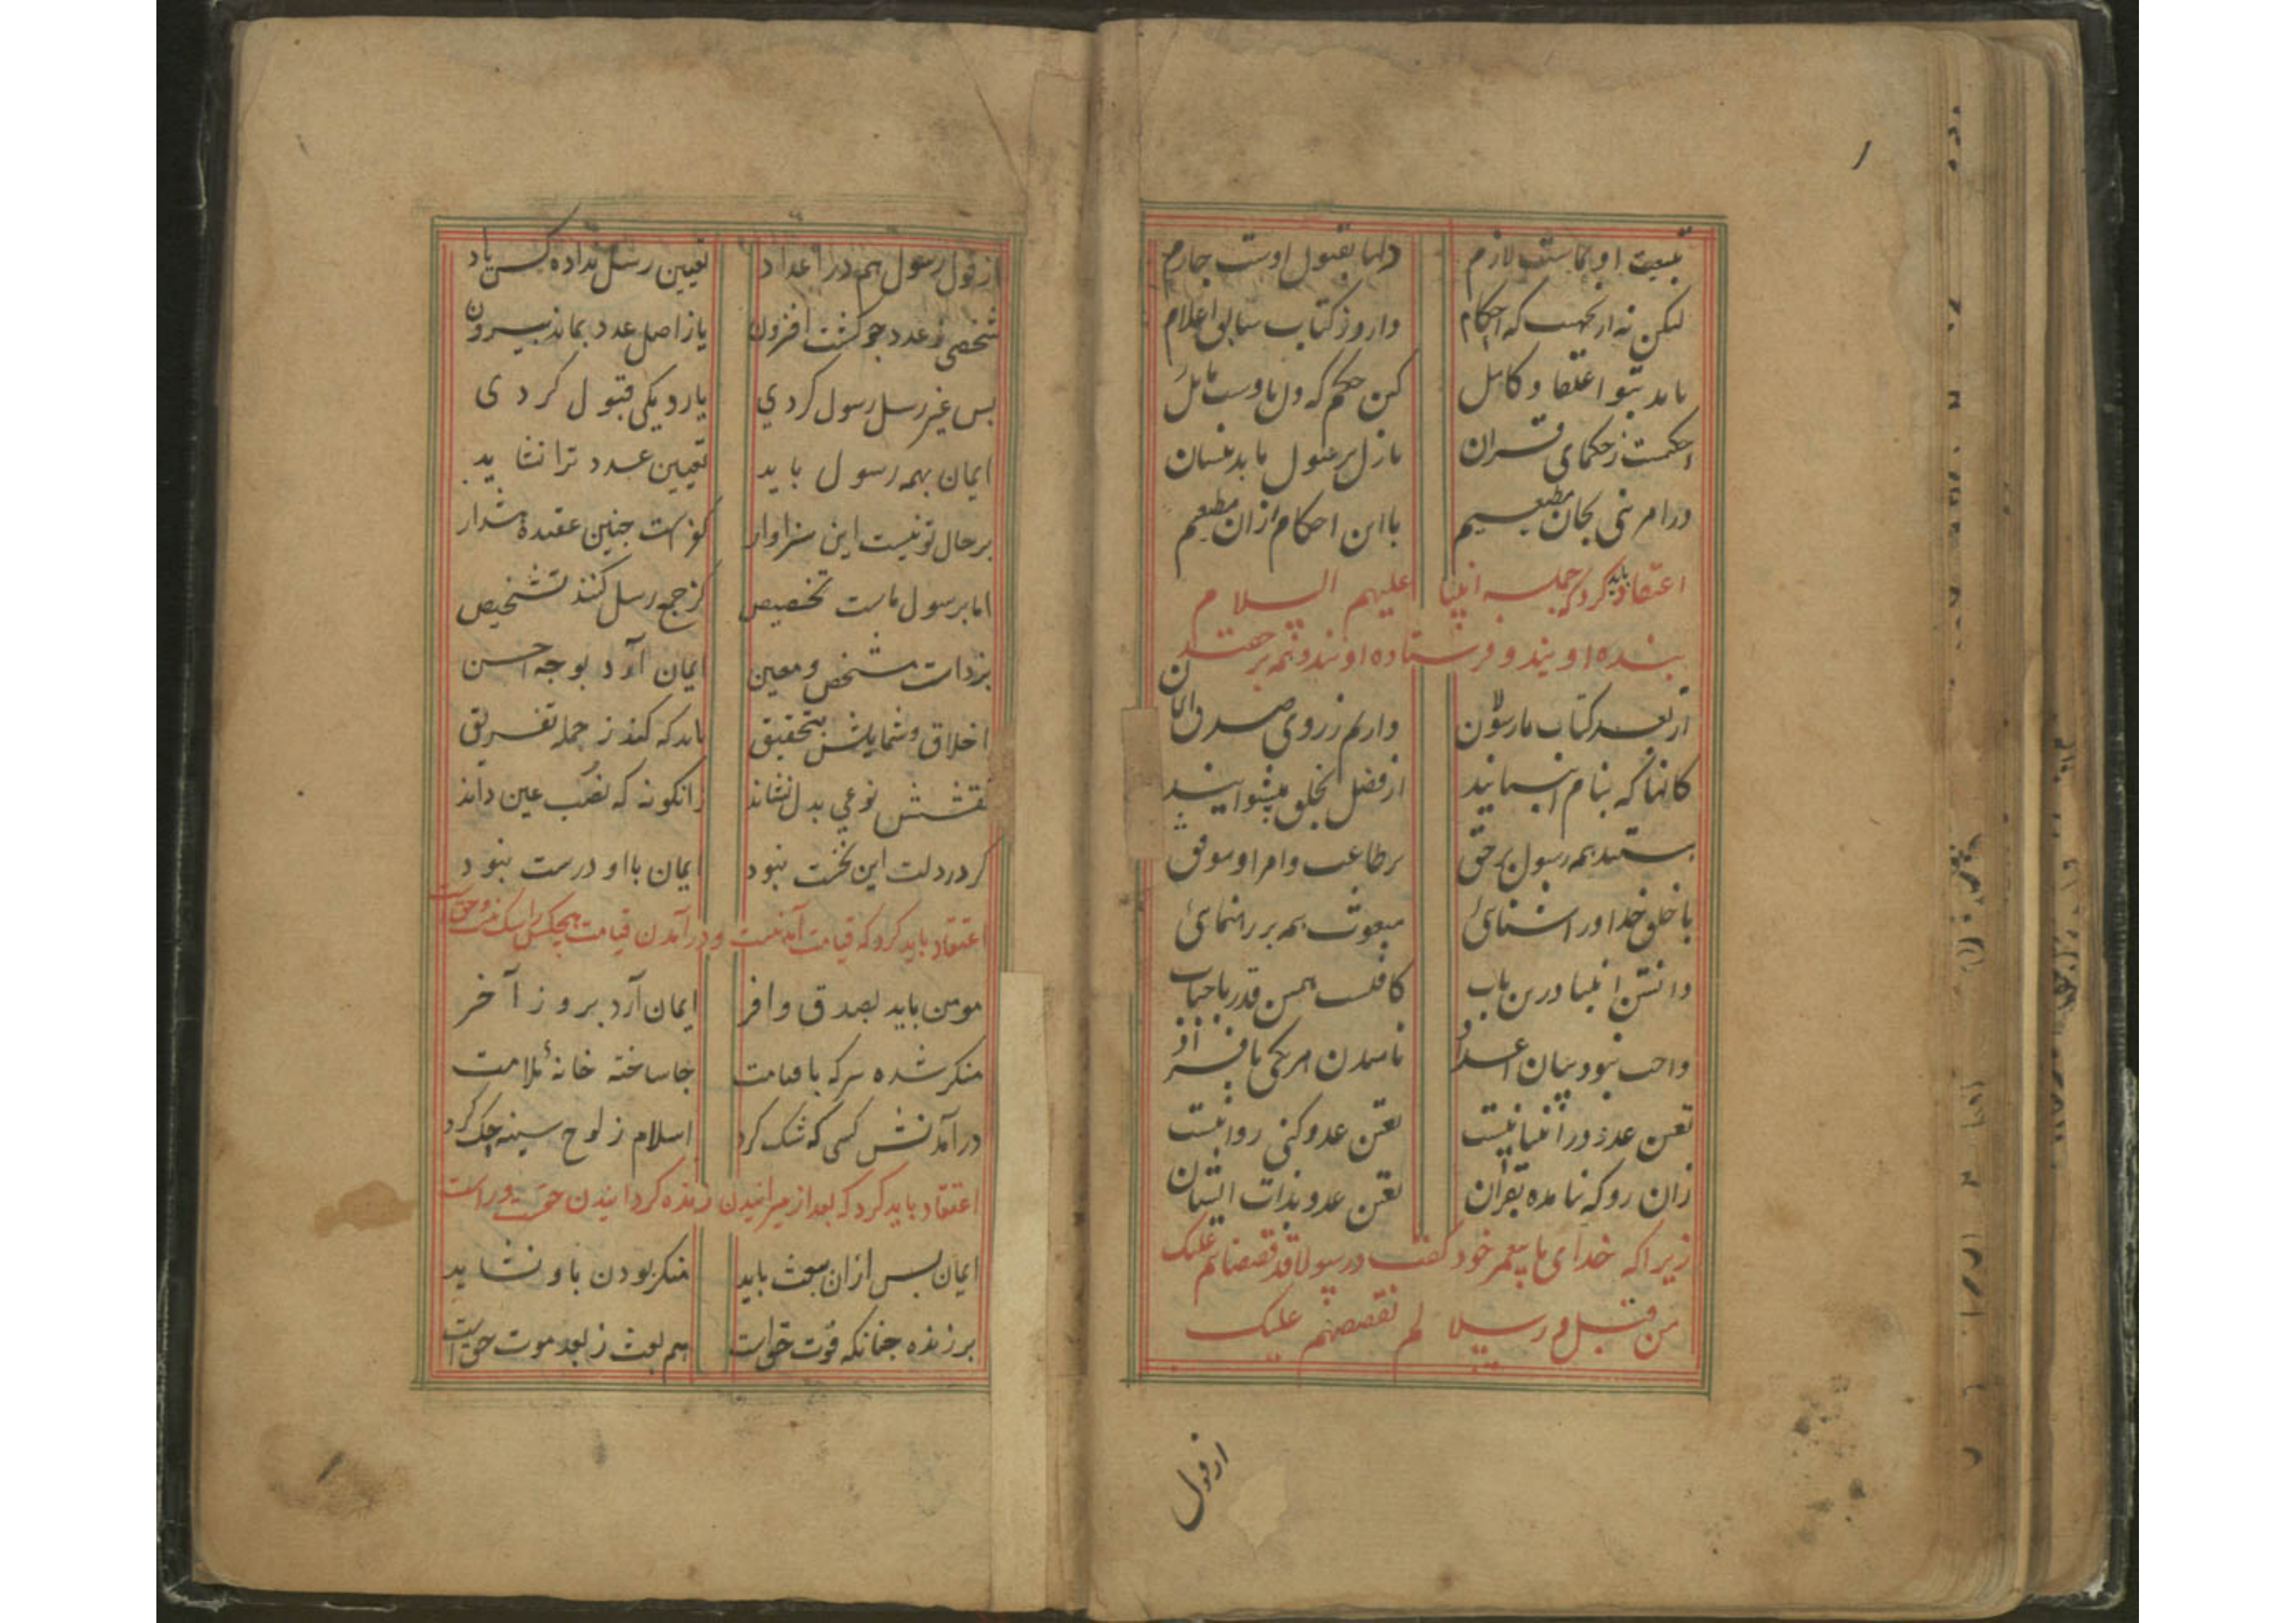 تبعیت او بماست لازم دلها بقبول اوست جازم
لیکن نه ازنجهت که احکام دارد ز کتاب سابق اعلام
باید بتو اعتقاد کامل کن حکم که دل باوست مایل
احکمست ز حکمهای قران نازل برسول ما بدینسان
در امر نهی بجان مطیعیم با این احکام ازان مطیعیم
اعتقاد باید کرد که جمله انبیا علیهم السلام
بنده اویند و فرستاده اویند و همه بر حقند
از بعد کتاب ما رسولان داریم ز روی صدق ایمان
کانها که بنام انبیایند از فضل بخلق پیشوایند
هستند همه رسول بر حق بر طاعت و امر او موفق
با خلق خدا در اشنائی مبعوث همه بر رهنمائی
دانستن انبیا درین باب کافیست همین قدر باحباب
واجب نبود بیان اعداد نامیدن هر یکی بافراد
تعین عدد در انبیا نیست تعین عدد کنی روا نیست
زان رو که نیامده بقران تعین عدد بذات ایشان
زیرا که خدای با پیغمبر خود گفت و رسولا قد قصصناهم علیک
من قبل و رسلا لم نقصصهم علیک
از قول
از قول رسول هم در اعداد تعیین رسل نداده کس یاد
شخصی ز عدد چو گشت افزون یا ز اصل عدد بماند بیرون
بس غیر رسل رسول کردی یا رد یکی قبول کردی
ایمان بهمه رسول باید تعیین عدد ترا نشاید
بر حال تو نیست این سزاوار کفر است چنین عقیده مشدار
اما برسول ماست تخصیص کز جمع رسل کنند تشخیص
بر ذات مشخص و معین ایمان آرد بوجه احسن
اخلاق و شمایلش بتحقیق باید که کند ز جمله تفریق
نقشش نوعی بدل نشاند زانکونه که نصب عین داند
کر در دلت این نخست نبود ایمان باو درست نبود
اعتقاد باید کرد که قیامت آمدنیست و در آمدن قیامت هیچکس را شک نیست و حق است
مومن باید بصدق وافر ایمان آرد بروز آخر
منکر شده هر که با قیامت جا ساخته خانهٔ ملامت
در آمدنش کسی که شک کرد اسلام ز لوح سینه حک کرد
اعتقاد باید کرد که بعد از میرانیدن زنده کردانیدن حق است و راست
ایمان بس ازان ببعث باید منکر بودن باو نشاید
بر زنده چنانکه فوت حق است هم بعث ز بعد موت حق است